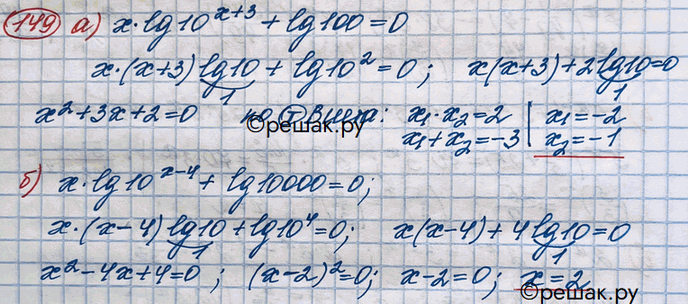 149 а) x·lg10^(x+3) + lg100 = 0
x·(x+3) lg10 + lg10^2 = 0; x(x+3) + 2 lg10 = 0
1 1
x^2 + 3x + 2 = 0 по т Виета: x1·x2 = 2 | x1 = -2
©решак.ру x1 + x2 = -3 | x2 = -1
б) x·lg10^(x-4) + lg10000 = 0;
x·(x-4) lg10 + lg10^4 = 0; x(x-4) + 4 lg10 = 0
1 1
x^2 - 4x + 4 = 0; (x-2)^2 = 0; x-2 = 0; x = 2
©решак.ру